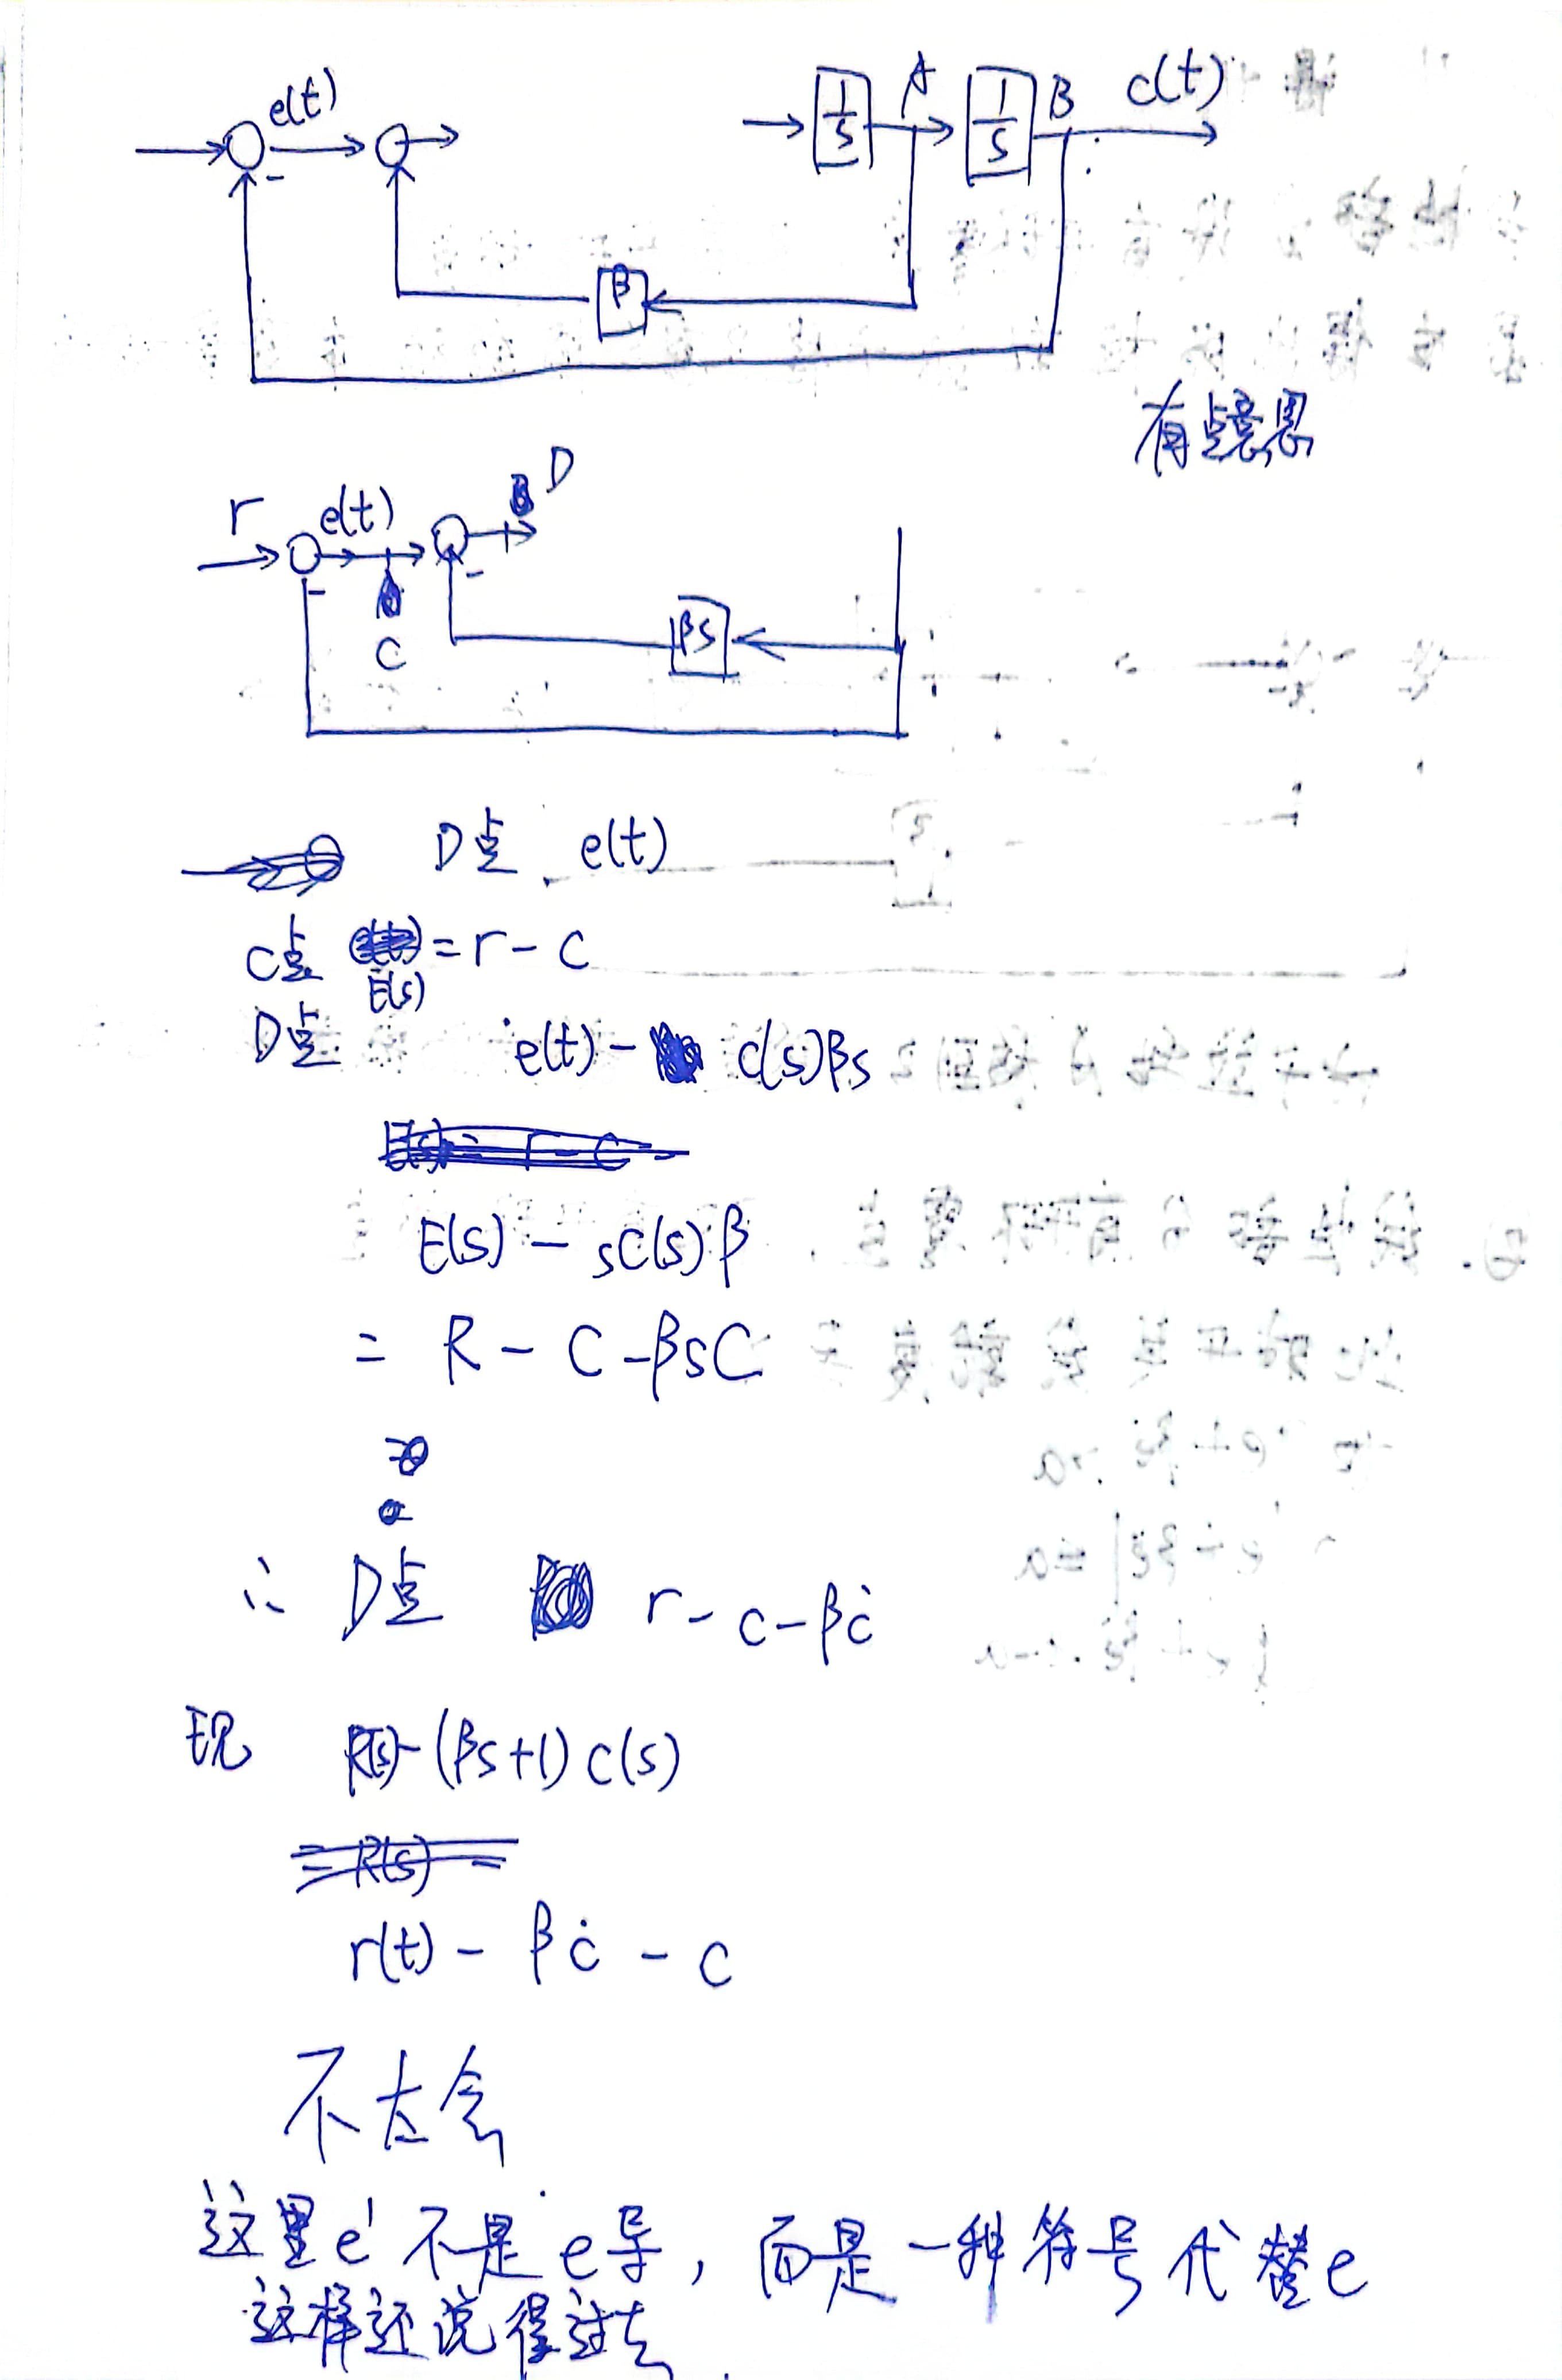 e(t)
-
1/s A 1/s B c(t)
β
有点意思
r e(t) D
-
-
C
βs
D点 e(t)
C点 = r - c
E(s)
D点 e(t) - c(s)βs
E(s) - sC(s)β
= R - C - βsC
∴ D点 r - c - βċ
现 R(s) - (βs+1)C(s)
= R(s) -
r(t) - βċ - c
不太会
这里e' 不是e导，而是一种符号代替e
这样还说得过去